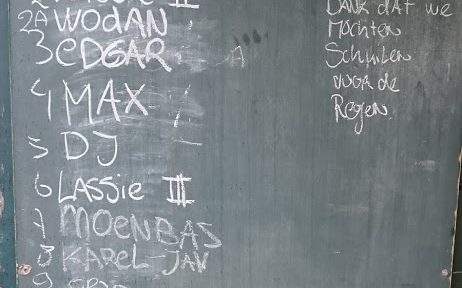 2A WODAN
3 EDGAR
A
4 MAX
5 DJ
6 LASSIE III
7 MOENBAS
8 KAREL-JAN
9
DANK dAT we
Mochten
Schuilen
de
Regen